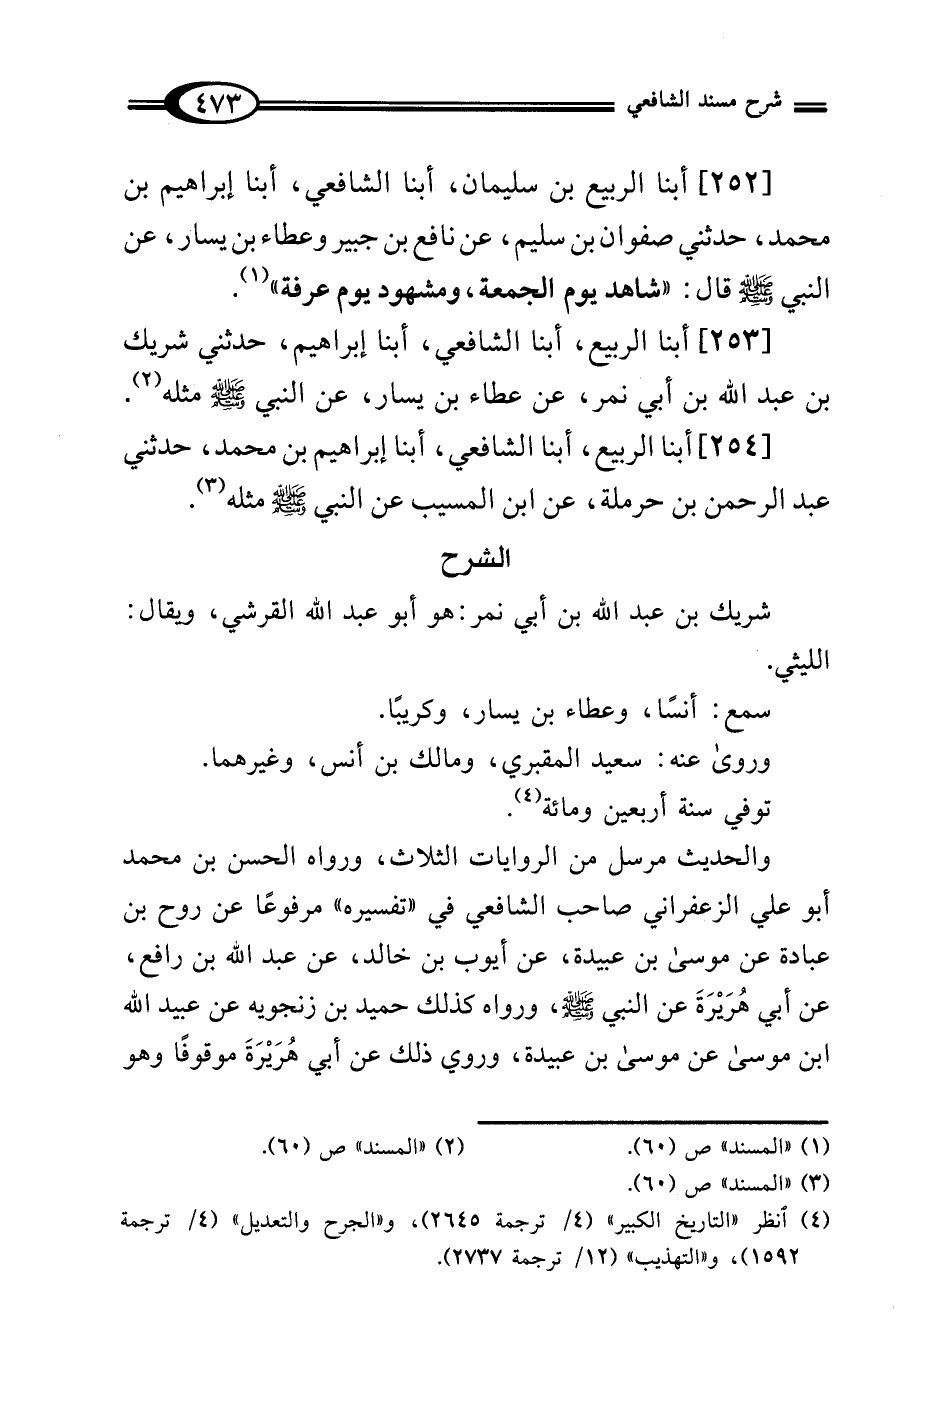 شرح مسند الشافعي ٤٧٣
[٢٥٢] أبنا الربيع بن سليمان، أبنا الشافعي، أبنا إبراهيم بن
محمد، حدثني صفوان بن سليم، عن نافع بن جبير وعطاء بن يسار، عن
النبي ﷺ قال: «شاهد يوم الجمعة، ومشهود يوم عرفة»(١).
[٢٥٣] أبنا الربيع، أبنا الشافعي، أبنا إبراهيم، حدثني شريك
بن عبد الله بن أبي نمر، عن عطاء بن يسار، عن النبي ﷺ مثله(٢).
[٢٥٤] أبنا الربيع، أبنا الشافعي، أبنا إبراهيم بن محمد، حدثني
عبد الرحمن بن حرملة، عن ابن المسيب عن النبي ﷺ مثله(٣).
الشرح
شريك بن عبد الله بن أبي نمر: هو أبو عبد الله القرشي، ويقال:
الليثي.
سمع: أنسًا، وعطاء بن يسار، وكريبًا.
وروىٰ عنه: سعيد المقبري، ومالك بن أنس، وغيرهما.
توفي سنة أربعين ومائة(٤).
والحديث مرسل من الروايات الثلاث، ورواه الحسن بن محمد
أبو علي الزعفراني صاحب الشافعي في «تفسيره» مرفوعًا عن روح بن
عبادة عن موسىٰ بن عبيدة، عن أيوب بن خالد، عن عبد الله بن رافع،
عن أبي هُرَيْرَةَ عن النبي ﷺ، ورواه كذلك حميد بن زنجويه عن عبيد الله
ابن موسىٰ عن موسىٰ بن عبيدة، وروي ذلك عن أبي هُرَيْرَةَ موقوفًا وهو
(١) «المسند» ص (٦٠). (٢) «المسند» ص (٦٠).
(٣) «المسند» ص (٦٠).
(٤) ٱنظر «التاريخ الكبير» (٤/ ترجمة ٢٦٤٥)، و«الجرح والتعديل» (٤/ ترجمة
١٥٩٢)، و«التهذيب» (١٢/ ترجمة ٢٧٣٧).